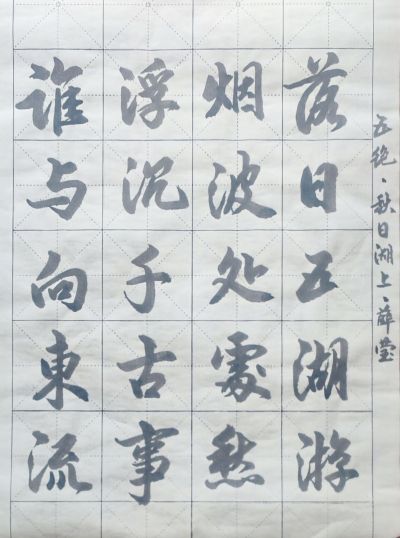 五绝、秋日湖上、薛莹
落日五湖游
烟波处處愁
浮沉千古事
誰与向東流